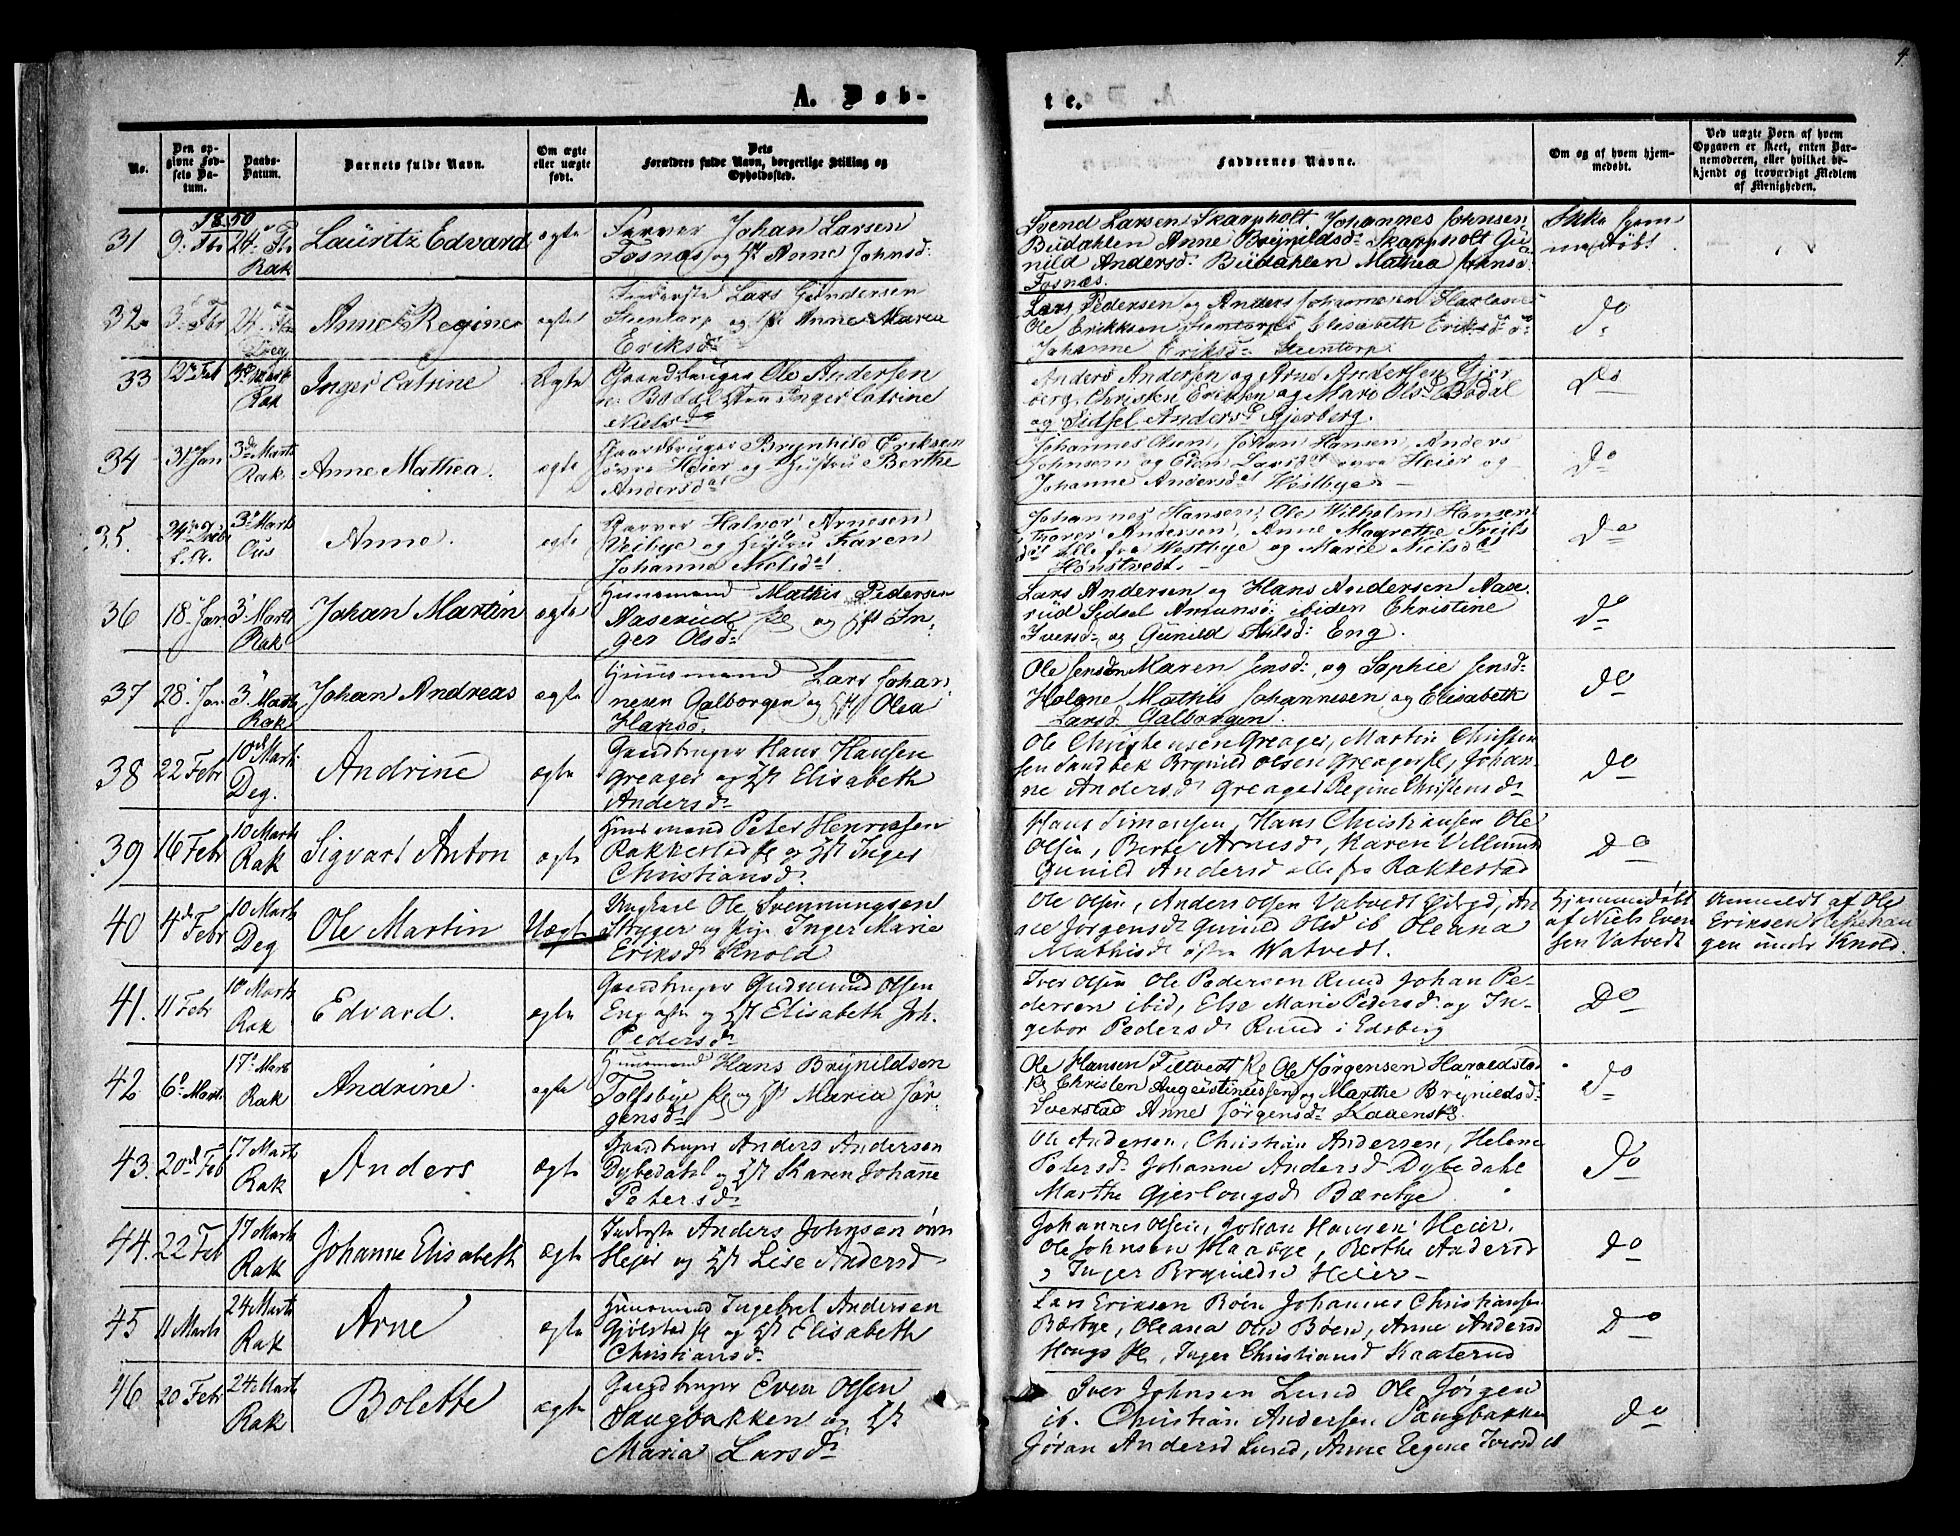 4.
A. Døb-
te.
No.
Den op-
givne Fød-
sels Da-
tum.
Daabs-
Datum.
Barnets fulde Navn.
Om ægte
eller uægte
født.
Dets
Forældres fulde Navn, borgerlige Stilling og
Opholdssted.
Faddernes Navne.
Om og af hvem hjem-
medøbt.
Ved uægte Born af hvem
Opgaven er skeet, enten Bar-
nemoderen, eller hvilket be-
kjendt og troværdigt Medlem
af Menigheden.
1850
31
9. Fbr
24 Fbr
Rak
Lauritz Edvard
ægte
Farver Johan Larsen
Fosnæs og Hst Anne Johnsd:
Svend Larsen Skarpholt Johannes Johnsen
Büdahlen Anne Brynildsd: Skarpholt Gu-
nild Andersd: Büdahlen Mathea Johnsd:
Fosnæs.
Ikke hjem
medøbt.
32
3. Fbr
24 Fbr
Deg
Anne Regine
ægte
Inderste Lars Gundersen
Steentorp og Hst Anne Maria
Eriksd:
Lars Pedersen og Anders Johannesen
Ole Eriksen Steentorp, Elisabeth Eriksd: o:
Johanne Eriksd: Steentorp.
do
33
12 Feb
3 Marts
Rak
Inger Catrine
Ægte
Gaardbruger Ole Andersen
Bødal Hstru Inger Catrine
Nielsd:
Anders Andersen og Arne Andersen Gjer
berg, Christen Eriksen og Mari Olsd: Bødal
og Sidsel Andersd: Gjerberg.
do
34
31 Jan
3de Marts
Rak
Anne Mathea.
ægte
Gaardbruger Brynhild Eriksen
øvre Heier og Hustru Berthe
Andersdat
Johannes Olsen, Johan Hansen, Anders
Johnsen og Larsdat øvre Heier og
Johanne Andersdat Westbye
do
35.
24
f. A.
3 Marts
Ous
Anne.
ægte
Farver Halvor Arnesen
Veibye og Hustru Karen
Johanne Nielsdat.
Johannes Hansen, Ole Wilhelm Hansen
Andersen, Anne Magrethe
dat alle fra Westbye og Marie Nielsdat
Hønstvedt.
do
36
18 Jan
3 Marts
Rak
Johan Martin
ægte
Huusmand Mathis Pedersen
Aaserud pl og Hst In-
ger Olsd:
Lars Andersen og Hans Andersen Aase
rüd Sidsel Amunsd: ibiden Christine
Iversd: og Gunild Nilsd: Eng.
do
37
28 Jan
3 Marts
Rak
Johan Andreas
ægte
Huusmand Lars Johan-
nesen Galborgen og Hst Olea
Hansd:
Ole Jensen Maren Jensd: og Sophie Jensd:
Holene Mathis Johannesen og Elisabeth
Larsd: Galborgen.
do
38
22 Febr
10d Marts
Deg.
Andrine
ægte
Gaardbruger Hans Hansen
Greager og Hst Elisabeth
Andersd:
Ole Christensen Greager, Martin Christen
sen Sandbek Brynild Olsen Greager, Johan-
ne Andersd: Greager Regine Christensd:
do
39
16 Febr
10 Marts
Rak
Sigvart Anton
ægte
Huusmand Peter Henriksen
Rakkestad pl og Hst Inger
Christiansd:
Hans Simensen, Hans Christiansen Ole
Olsen, Berte Arnesd:, Karen
Gunild Andersd alle fra Rakkestad
do
40
4d Febr
10 Marts
Deg
Ole Martin
Uægte
Ungkarl Ole Svenningsen
Stryger og Pige Inger Marie
Eriksd: Knold
Ole Olsen, Anders Olsen Vatvedt
Jørgensd: Gunild Olsd ib Oleana
Mathisd: Watvedt.
Hjemmedøbt
af Niels Even
sen Vatvedt
Anmeldt af Ole
Eriksen
gen under Knold.
41.
11 Febr
10 Marts
Rak
Edvard.
ægte
Gaardbruger Gudmund Olsen
Eng og Hst Elisabeth Joh.
Pedersd:
Iver Olsen Ole Pedersen Ruud Johan Pe-
dersen ibid, Else Marie Pedersd: og In-
gebor Pedersd: Ruud i Edsberg
Do
42.
6 Marts
17 Marts
Rak
Andrine.
ægte
Huusmand Hans Brynildsen
Tolfsbye pl og Hst Maria Jør-
gensd:
Ole Hansen Pl Ole Jørgensen Haraldstad
Pl Christen Augustinussen og Marthe Brynildsd:
Sverstad Anne Jørgensd:
do
43.
20d Feb
17 Marts
Rak
Anders
ægte
Gaardbruger Anders Andersen
Dybedahl og Hst Karen Johanne
Petersd:
Ole Andersen, Christian Andersen, Helene
Petersd: Johanne Andersd: Dybedahl
Marthe Gjerlougsd: Bærebye
do
44.
22 Feb
17 Marts
Rak
Johanne Elisabeth
ægte
Inderste Anders Johnsen øvre
Heier og Hst Lise Andersd
Johannes Olsen, Johan Hansen Heier,
Ole Johnsen, Berthe Andersd
Inger Brynildsd Heier
do
45
11 Marts
24 Marts
Rak
Arne
ægte
Huusmand Ingebret Andersen
Gjølstad pl og Hst Elisabeth
Christiansd:
Lars Eriksen Bøen Johannes Christiansen
Bærbye, Oleana Olsd Bøen, Anne Andersd
Hougs pl, Inger Christiansd Kaaterud
do
46
20 Febr
24 Marts
Rak
Bolette
ægte
Gaardbruger Even Olsen
Saugbakken og Hst
Maria Larsd:
Iver Johnsen Lund Ole Jørgen
ib. Christian Andersen Saugbakken
Jøran Andersd Lund, Anne Regine Iversd
do